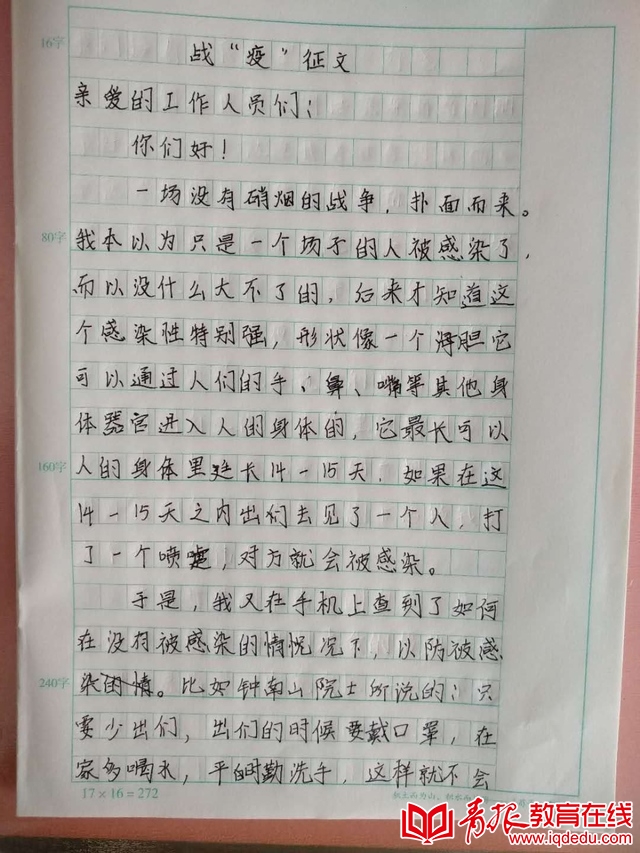 战“疫”征文
16字
亲爱的工作人员们：
你们好！
一场没有硝烟的战争，扑面而来。
80字
我本以为只是一个场子的人被感染了，
而以没什么大不了的，后来才知道这
个感染性特别强，形状像一个海胆它
可以通过人们的手、鼻、嘴等其他身
体器官进入人的身体的，它最长可以
160字
人的身体里延长14-15天．如果在这
14-15天之内出们去见了一个人，打
了一个喷嚏，对方就会被感染。
于是，我又在手机上查到了如何
在没有被感染的情况况下，以防被感
240字
染的情。比如钟南山院士所说的：只
要少出们，出们的时候要戴口罩，在
家多喝水，平时勤洗手，这样就不会
17×16=272
青报教育在线
www.iqdedu.com